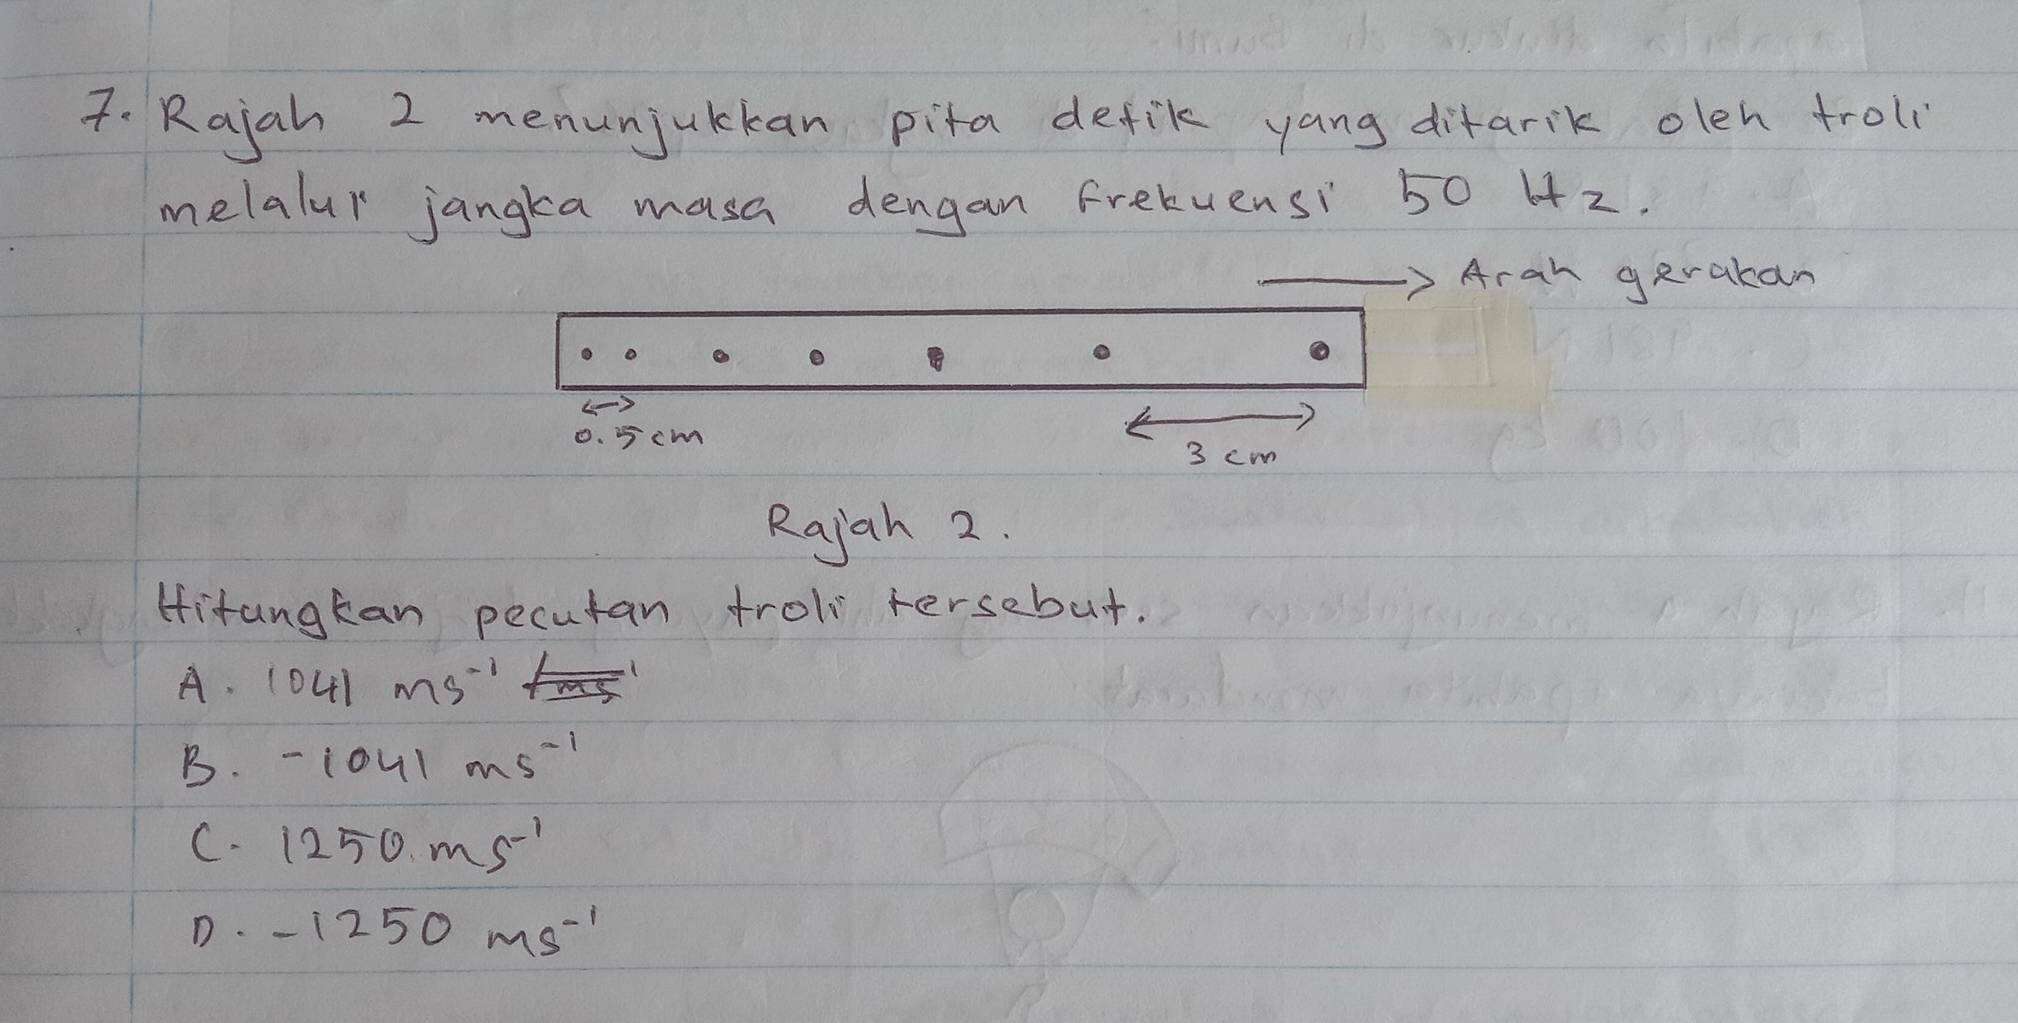 7. Rajah 2 menunjukkan pita detik yang ditarik oleh troli
melalui jangka masa dengan frekuensi 50 Hz.
Arah gerakan
0.5 cm
3 cm
Rajah 2.
Hitungkan pecutan troli tersebut.
A. 1041 ms⁻¹
B. -1041 ms⁻¹
C. 1250 ms⁻¹
D. -1250 ms⁻¹